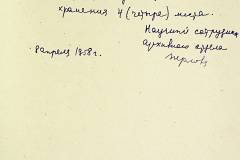 хранения 4 (четыре) места.
Научный сотрудник
архивного отдела
8 апреля 1958 г.